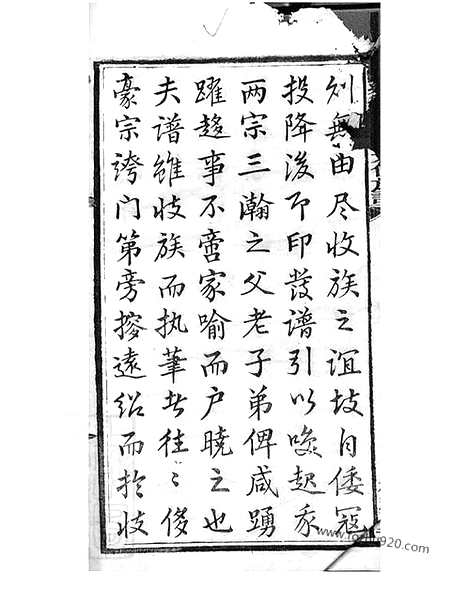 無由尽收族之誼故自倭寇
投降後即印發譜引以喚起我
两宗三瀚之父老子弟俾咸踴
躍趨事不啻家喻而户曉之也
夫谱雖收族而执筆者往〻侈
豪宗誇门第旁搜遠紹而於收